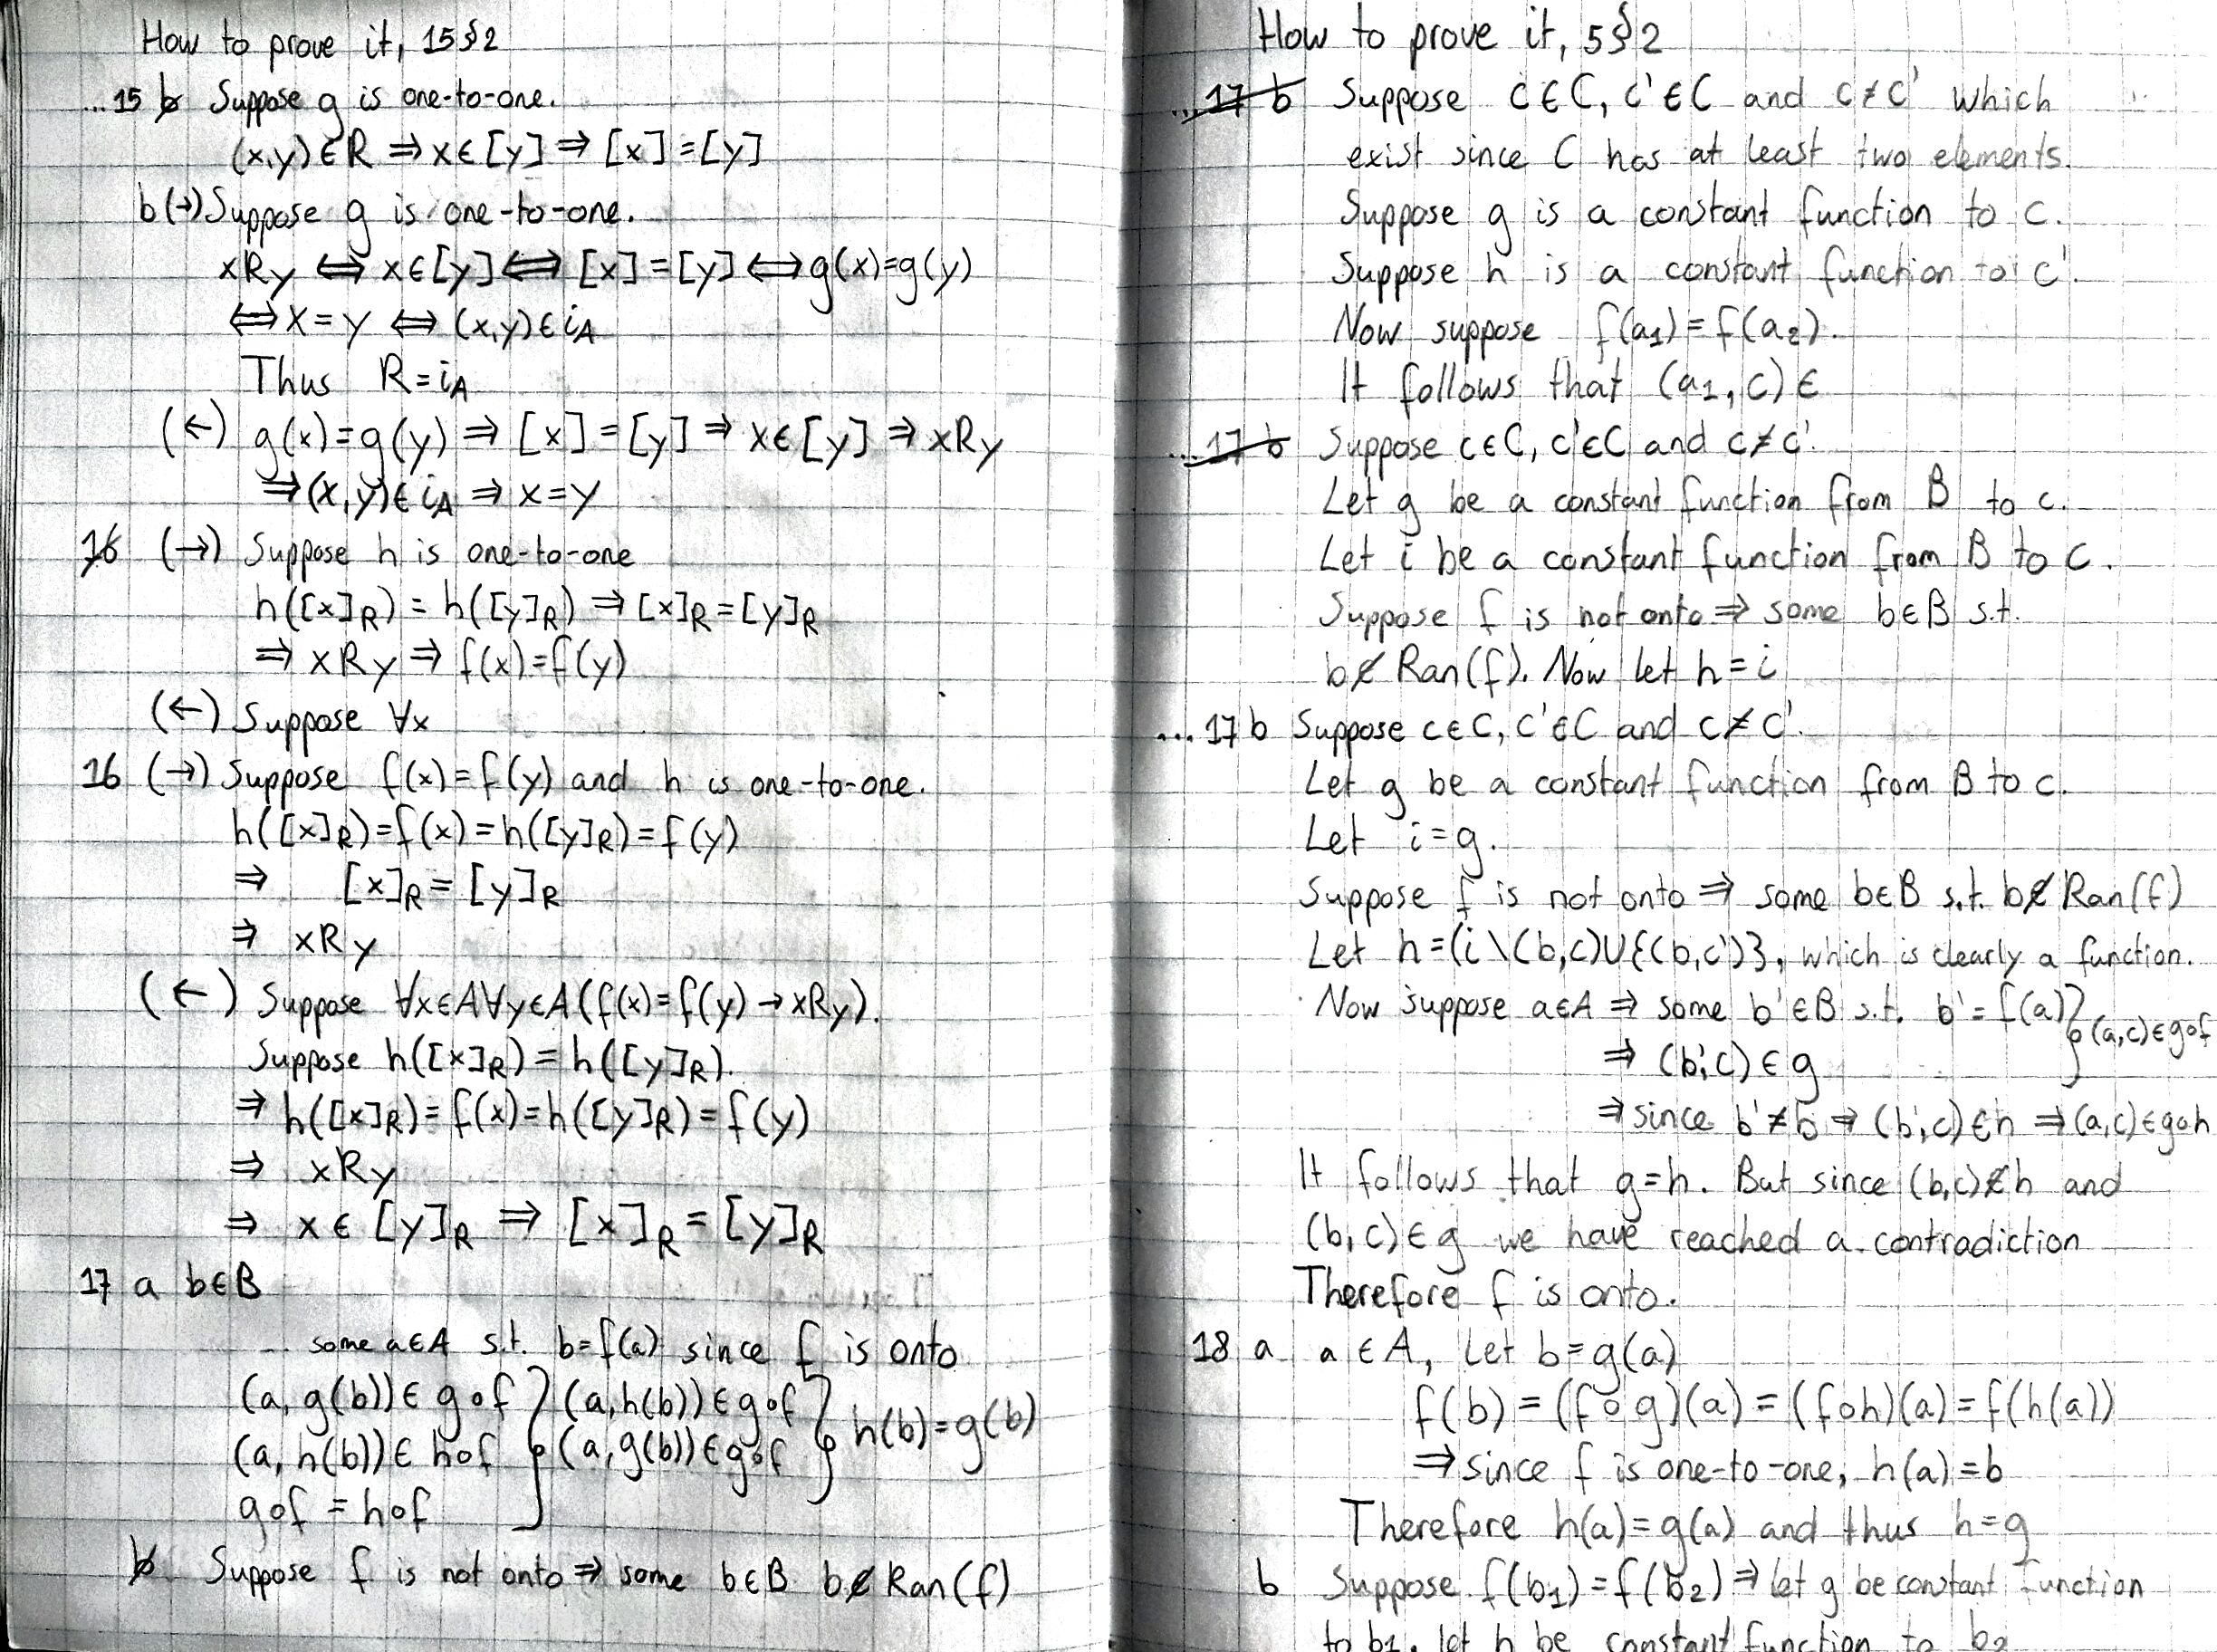 How to prove it, 15§2
...15 b Suppose g is one-to-one.
(x,y)∈R ⇒ x∈[y] ⇒ [x]=[y]
b(→) Suppose g is one-to-one.
xRy ⟺ x∈[y] ⟺ [x]=[y] ⟺ g(x)=g(y)
⟺ x=y ⟺ (x,y)∈iA
Thus R=iA
(←) g(x)=g(y) ⇒ [x]=[y] ⇒ x∈[y] ⇒ xRy
⇒(x,y)∈iA ⇒ x=y
16 (→) Suppose h is one-to-one
h([x]R)=h([y]R) ⇒ [x]R=[y]R
⇒ xRy ⇒ f(x)=f(y)
(←) Suppose ∀x
16 (→) Suppose f(x)=f(y) and h is one-to-one.
h([x]R)=f(x)=h([y]R)=f(y)
⇒ [x]R=[y]R
⇒ xRy
(←) Suppose ∀x∈A∀y∈A(f(x)=f(y)→xRy).
Suppose h([x]R)=h([y]R).
⇒ h([x]R)=f(x)=h([y]R)=f(y)
⇒ xRy
⇒ x∈[y]R ⇒ [x]R=[y]R
17 a b∈B
some a∈A s.t. b=f(a) since f is onto
(a,g(b))∈g∘f } (a,h(b))∈g∘f } h(b)=g(b)
(a,h(b))∈h∘f (a,g(b))∈g∘f
g∘f = h∘f
b Suppose f is not onto ⇒ some b∈B b∉Ran(f)
How to prove it, 5§2
...17 b Suppose c∈C, c'∈C and c≠c' which
exist since C has at least two elements.
Suppose g is a constant function to c.
Suppose h is a constant function to c'.
Now suppose f(a1)=f(a2).
It follows that (a1,c)∈
...17 b Suppose c∈C, c'∈C and c≠c'.
Let g be a constant function from B to c.
Let i be a constant function from B to c.
Suppose f is not onto ⇒ some b∈B s.t.
b∉Ran(f). Now let h=i
...17 b Suppose c∈C, c'∈C and c≠c'.
Let g be a constant function from B to c.
Let i=g.
Suppose f is not onto ⇒ some b∈B s.t. b∉Ran(f)
Let h=(i\(b,c)∪{(b,c')}, which is clearly a function.
Now suppose a∈A ⇒ some b'∈B s.t. b'=f(a) } (a,c)∈g∘f
⇒ (b',c)∈g
⇒ since b'≠b ⇒ (b',c)∈h ⇒ (a,c)∈g∘h
It follows that g=h. But since (b,c)∉h and
(b,c)∈g we have reached a contradiction
Therefore f is onto.
18 a a∈A, Let b=g(a)
f(b)=(f∘g)(a)=(f∘h)(a)=f(h(a))
⇒ since f is one-to-one, h(a)=b
Therefore h(a)=g(a) and thus h=g
b Suppose f(b1)=f(b2) ⇒ let g be constant function
to b1, let h be constant function to b2